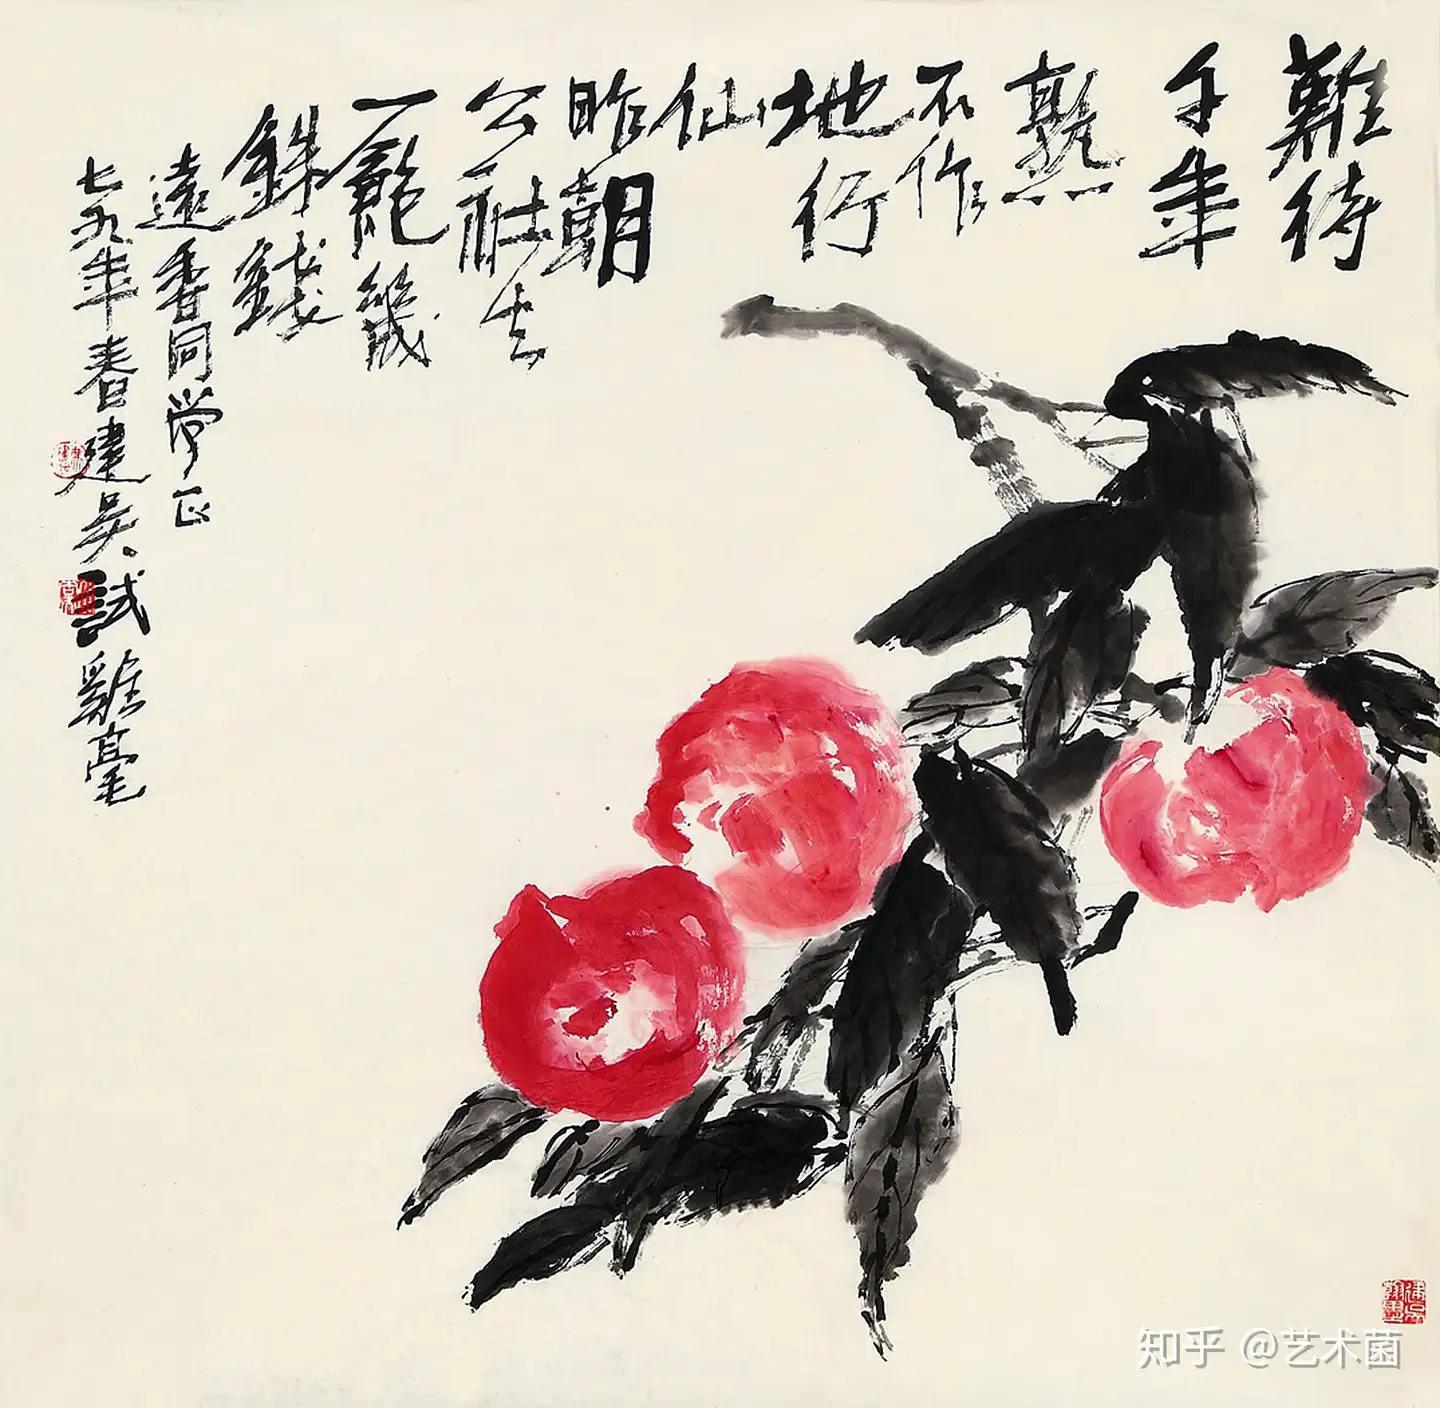 難待
千年
熟
不作
地行
仙
昨朝
公社去
一飽幾
銖錢
遠香同学正
七九年春建吴試雞毫
知乎 @艺术菌